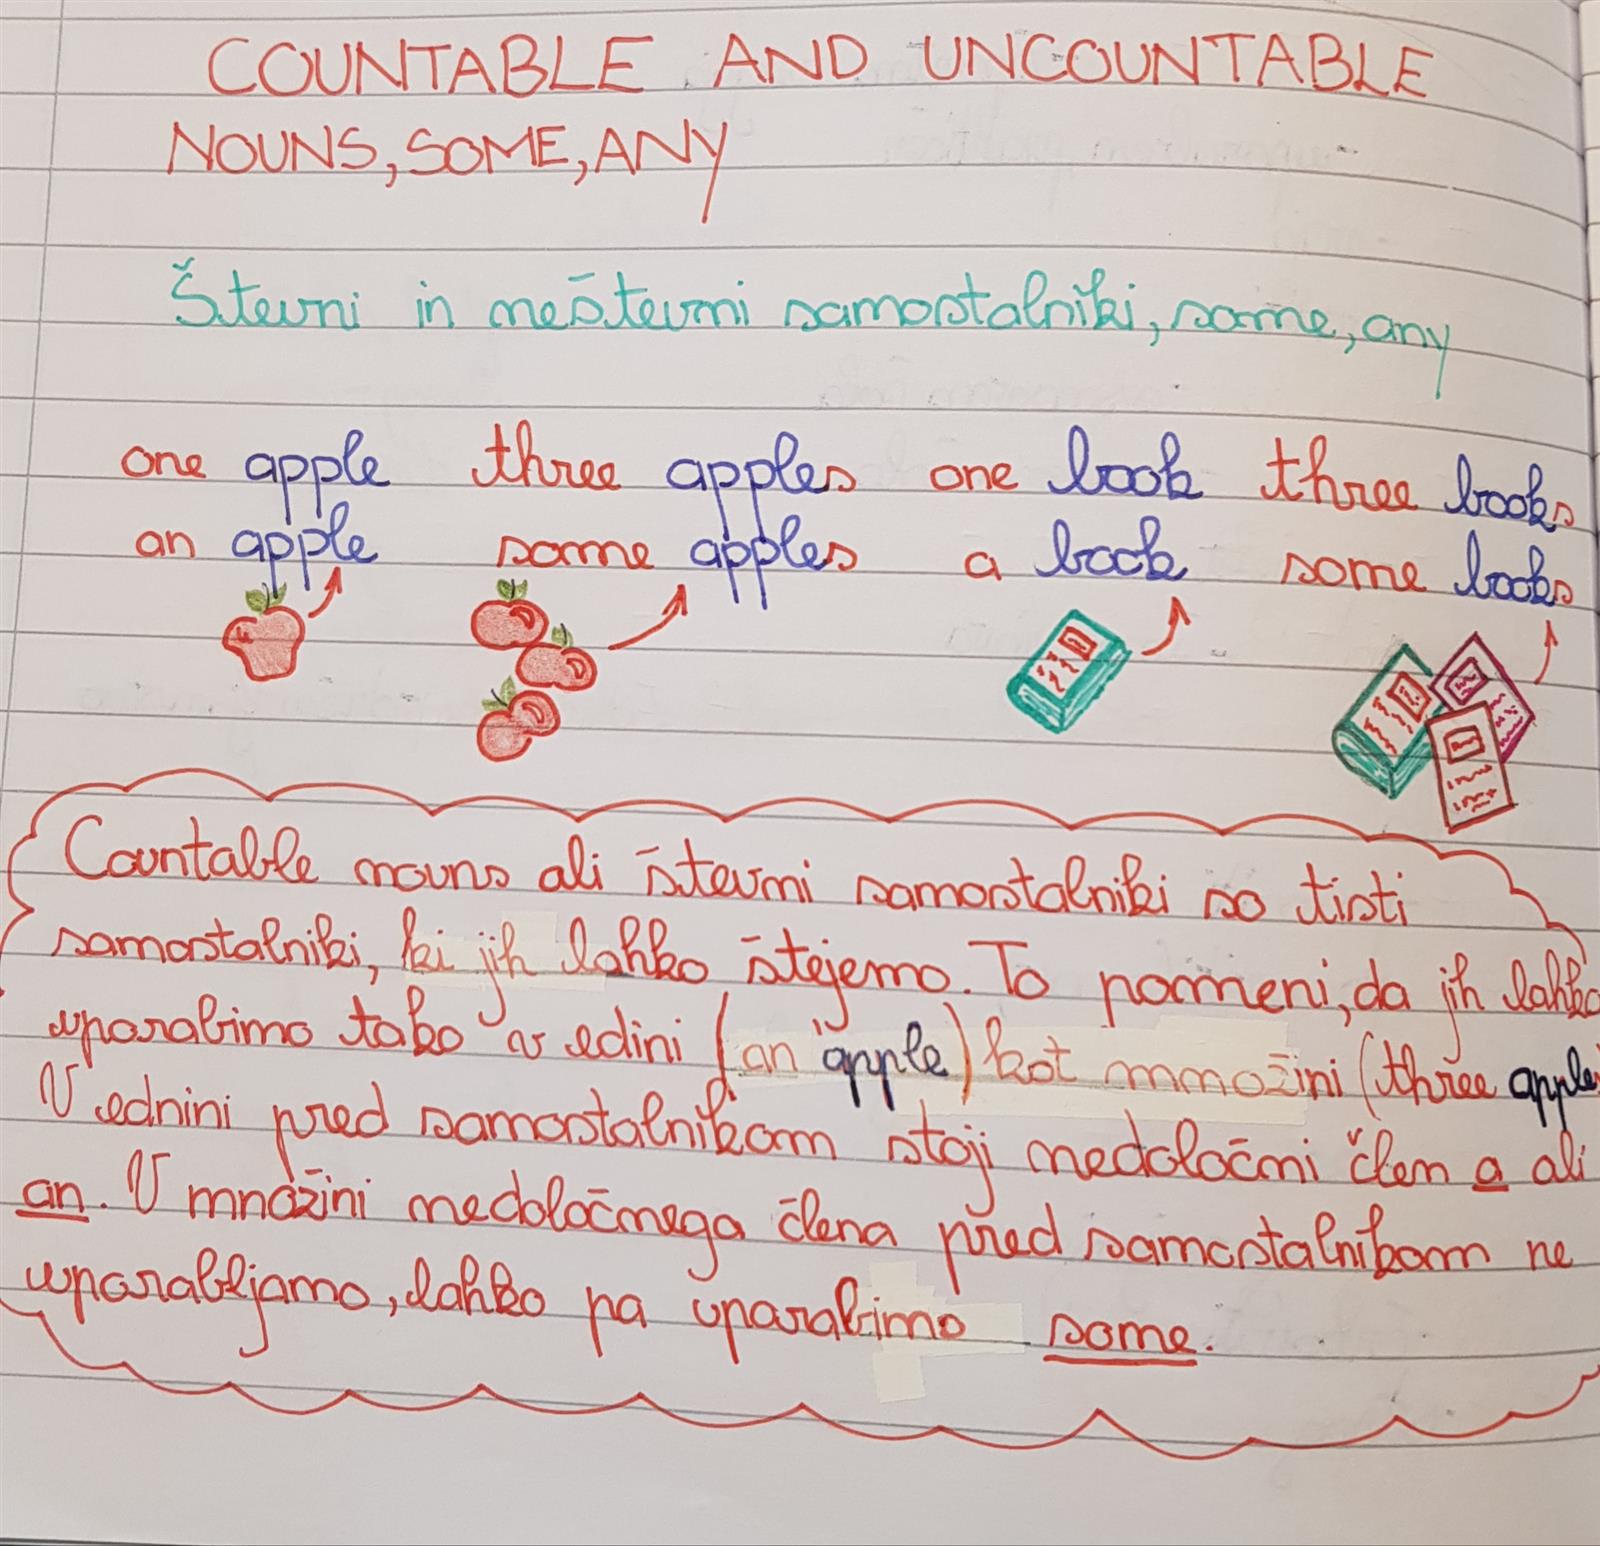 COUNTABLE AND UNCOUNTABLE
NOUNS, SOME, ANY
Števni in neštevni samostalniki, some, any
one apple three apples one book three books
an apple some apples a book some books
Countable nouns ali števni samostalniki so tisti
samostalniki, ki jih lahko štejemo. To pomeni, da jih lahko
uporabimo tako v edini (an apple) kot mnozini (three apple
V ednini pred samostalnikom stoji nedoločni člen a ali
an. V množini nedoločnega člena pred samostalnikom ne
uporabljamo, lahko pa uporabimo some.